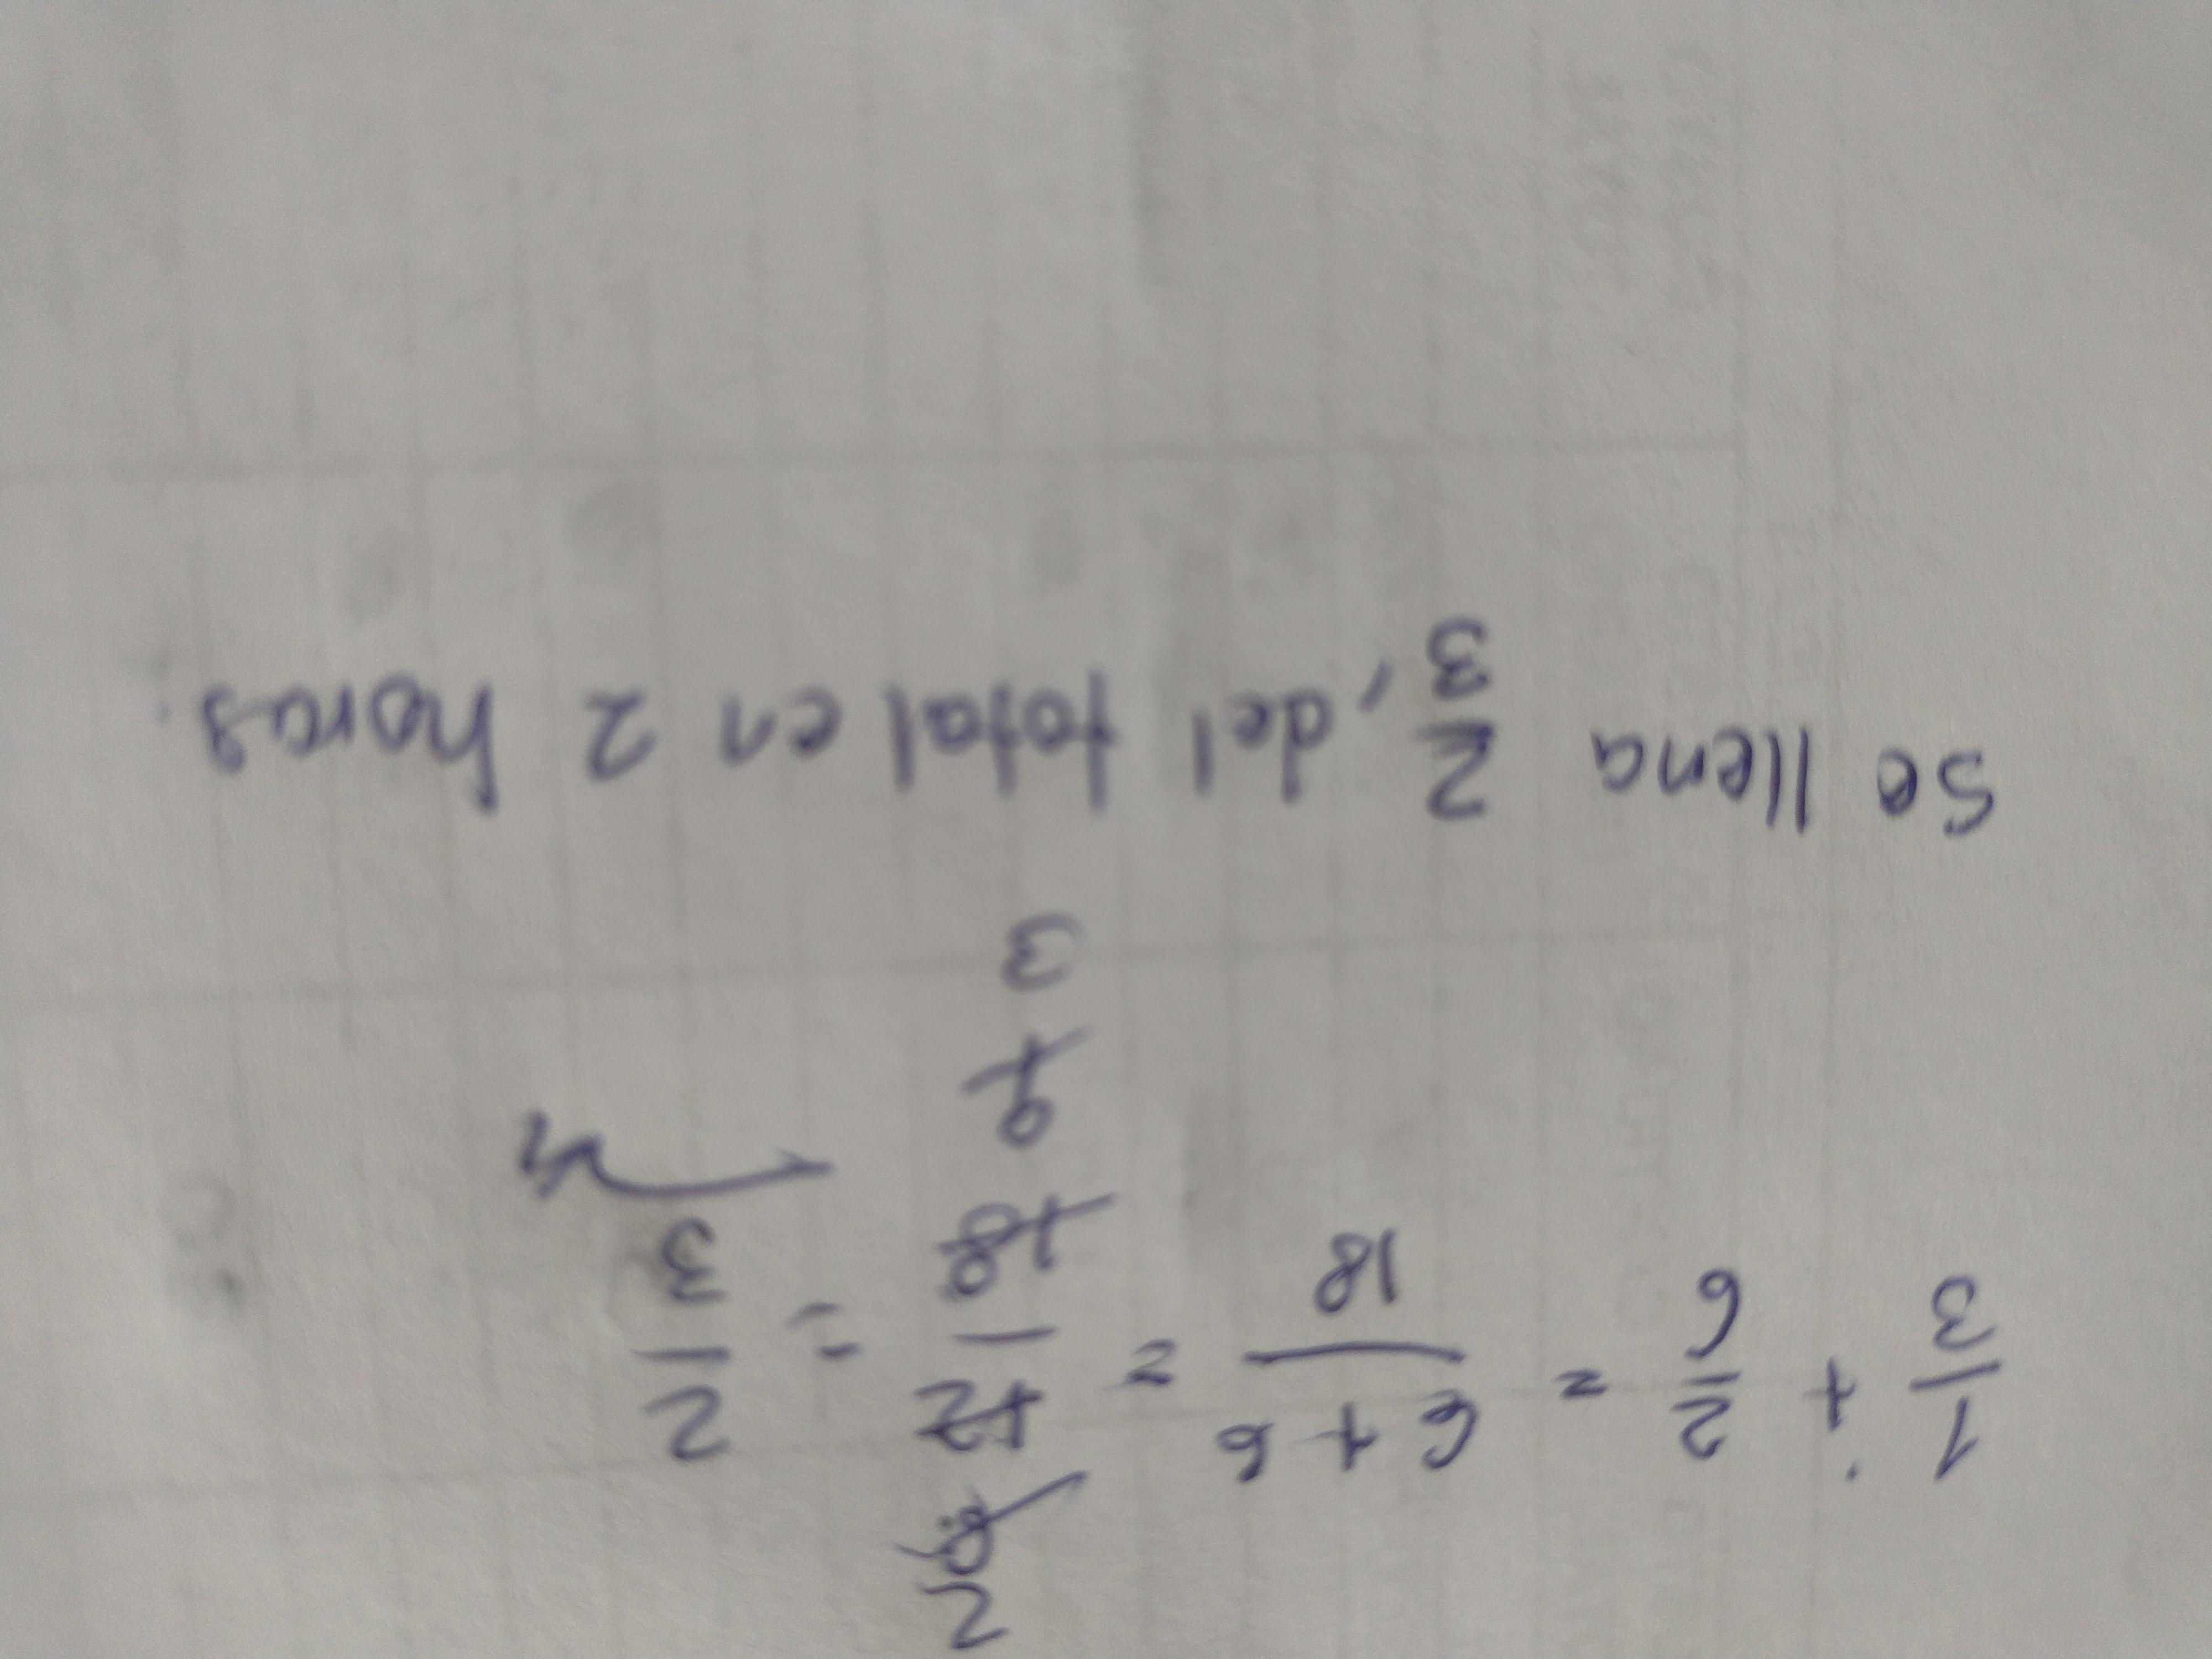 2
6
1/3 + 2/6 = 6+6/18 = 12/18 = 2/3
9
3
Se llena 2/3, del total en 2 horas.